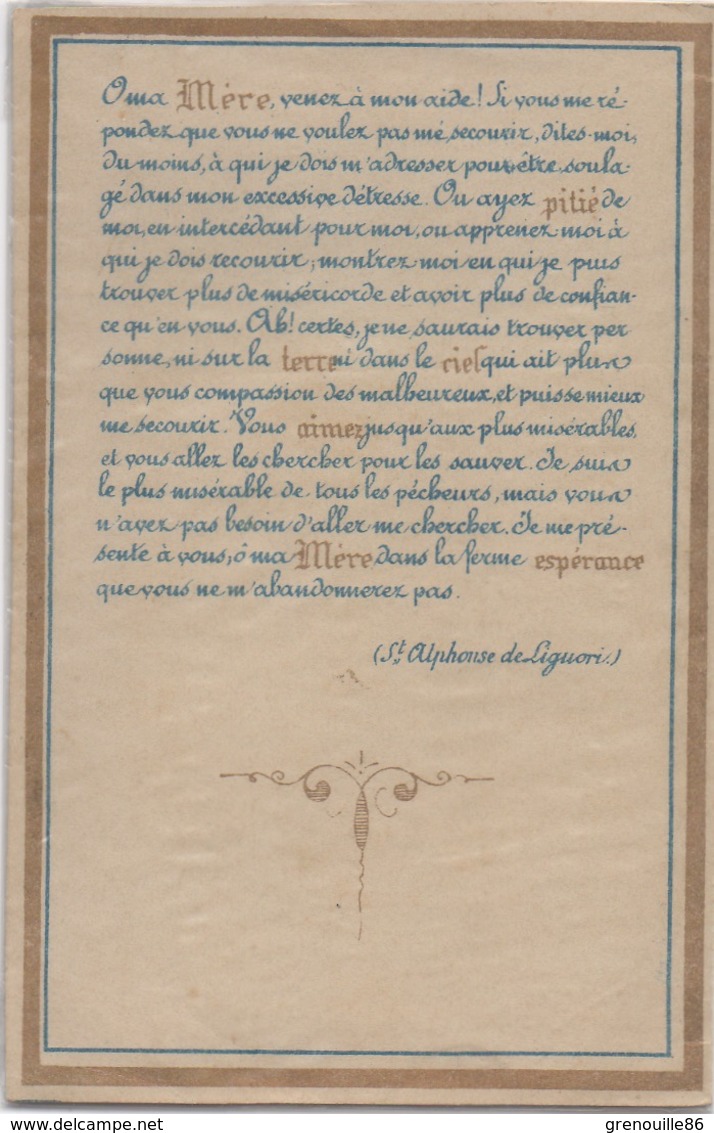 O ma Mère, venez à mon aide! Si vous me ré-
pondez que vous ne voulez pas me secourir, dites-moi,
du moins, à qui je dois m'adresser pour être soula-
gé dans mon excessive détresse. Ou ayez pitié de
moi, en intercédant pour moi, ou apprenez-moi à
qui je dois recourir; montrez-moi en qui je puis
trouver plus de miséricorde et avoir plus de confian-
ce qu'en vous. Ah! certes, je ne saurais trouver per
sonne, ni sur la terre ni dans le ciel qui ait plus
que vous compassion des malheureux, et puisse mieux
me secourir. Vous aimez jusqu'aux plus misérables,
et vous allez les chercher pour les sauver. Je suis
le plus misérable de tous les pécheurs, mais vous
n'avez pas besoin d'aller me chercher. Je me pré-
sente à vous, ô ma Mère, dans la ferme espérance
que vous ne m'abandonnerez pas.
(St Alphonse de Liguori.)
www.delcampe.net
grenouille86